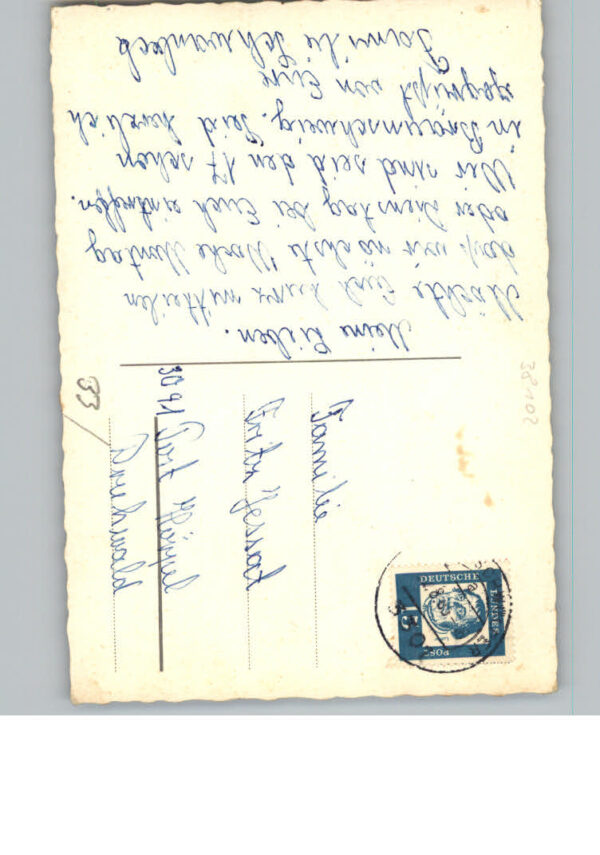 Meine Lieben.
Möchte Euch kurz mitteilen
daß wir nächste Woche Montag
oder Dienstag bei Euch eintreffen.
Wir sind seid den 17 schon
in Braunschweig. Seid herzlich
gegrüßt von Eure
Familie Schwanbeck
Familie
Fritz Jessat
3091 Post Hönisch
33
38102
DEUTSCHE
POST
15